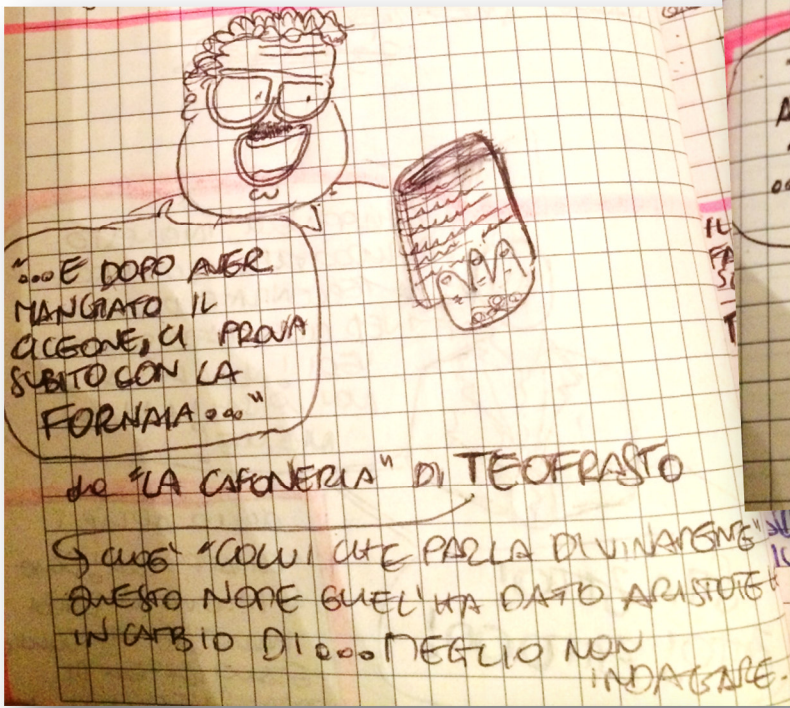 "...E DOPO AVER
MANGIATO IL
CICEONE, CI PROVA
SUBITO CON LA
FORNAIA..."
da "LA CAFONERIA" DI TEOFRASTO
CIOE' "COLUI CHE PARLA DIVINAMENTE"
QUESTO NOME GLIEL'HA DATO ARISTOTE
IN CAMBIO DI...MEGLIO NON
INDAGARE.
IL